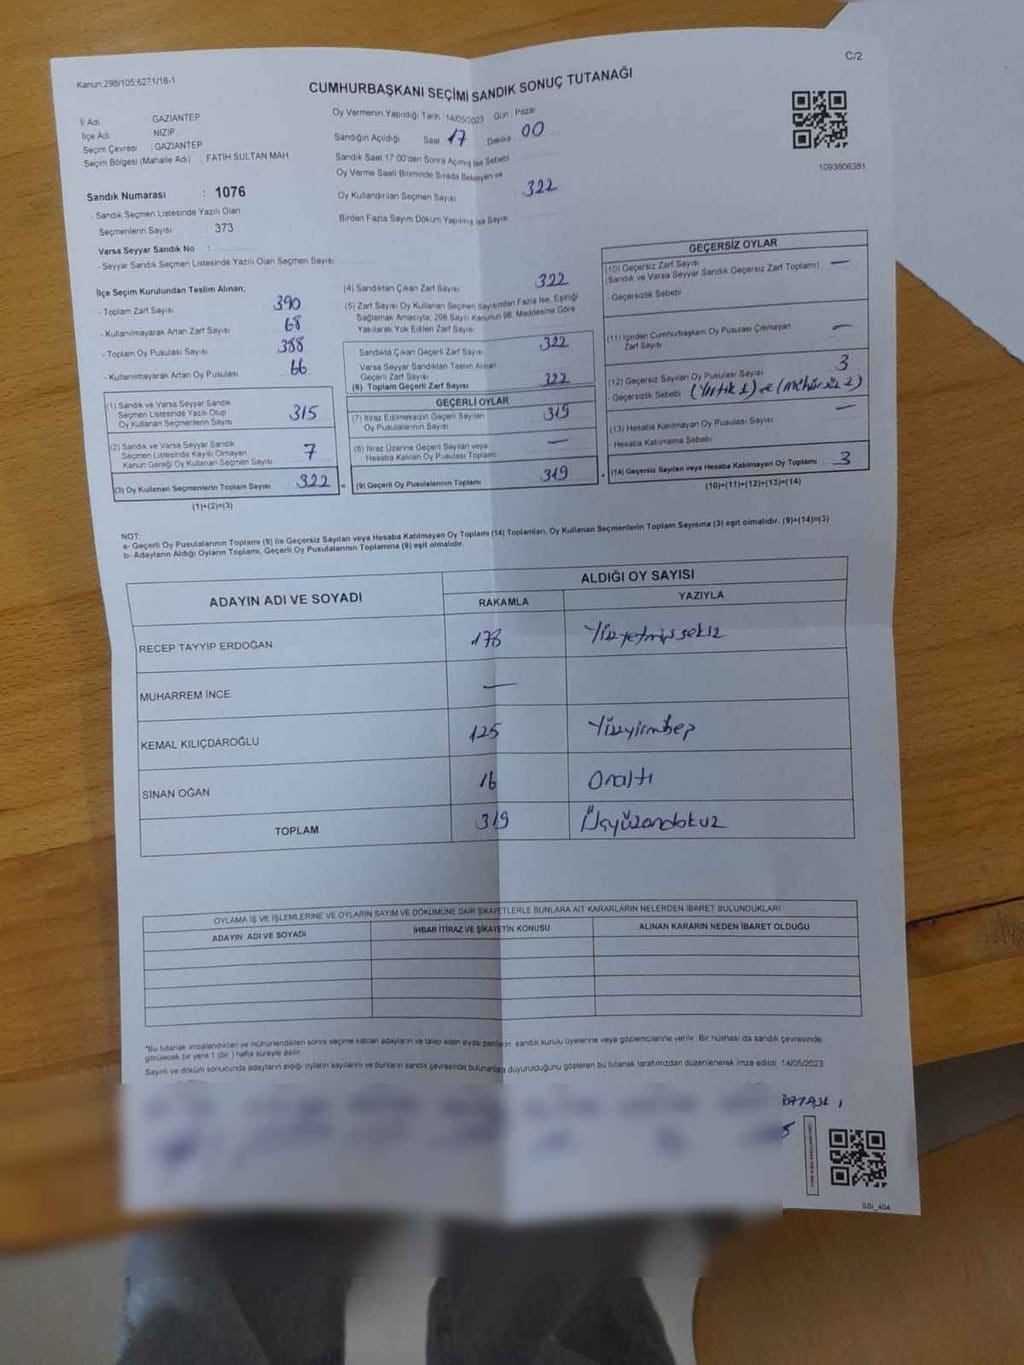 C/2
Kanun:298/105;6271/18-1
CUMHURBAŞKANI SEÇİMİ SANDIK SONUÇ TUTANAĞI
İl Adı : GAZİANTEP
İlçe Adı : NİZİP
Seçim Çevresi : GAZİANTEP
Seçim Bölgesi (Mahalle Adı) : FATİH SULTAN MAH
Sandık Numarası : 1076
- Sandık Seçmen Listesinde Yazılı Olan
Seçmenlerin Sayısı : 373
Varsa Seyyar Sandık No :
- Seyyar Sandık Seçmen Listesinde Yazılı Olan Seçmen Sayısı
Oy Vermenin Yapıldığı Tarih : 14/05/2023 Gün : Pazar
Sandığın Açıldığı Saat 17 Dakika 00
Sandık Saat 17 00'den Sonra Açılmış İse Sebebi
Oy Verme Saati Bitiminde Sırada Bekleyen ve
Oy Kullandırılan Seçmen Sayısı 322
Birden Fazla Sayım Döküm Yapılmış İse Sayısı
1093806381
İlçe Seçim Kurulundan Teslim Alınan;
- Toplam Zarf Sayısı 390
- Kullanılmayarak Artan Zarf Sayısı 68
- Toplam Oy Pusulası Sayısı 388
- Kullanılmayarak Artan Oy Pusulası 66
(1) Sandık ve Varsa Seyyar Sandık
Seçmen Listesinde Yazılı Olup
Oy Kullanan Seçmenlerin Sayısı 315
(2) Sandık ve Varsa Seyyar Sandık
Seçmen Listesinde Kaydı Olmayan
Kanun Gereği Oy Kullanan Seçmen Sayısı 7
(3) Oy Kullanan Seçmenlerin Toplam Sayısı 322 =
(1)+(2)=(3)
(4) Sandıktan Çıkan Zarf Sayısı 322
(5) Zarf Sayısı Oy Kullanan Seçmen Sayısından Fazla İse, Eşitliği
Sağlamak Amacıyla; 298 Sayılı Kanunun 98. Maddesine Göre
Yakılarak Yok Edilen Zarf Sayısı
Sandıkta Çıkan Geçerli Zarf Sayısı 322
Varsa Seyyar Sandıktan Teslim Alınan
Geçerli Zarf Sayısı
(6) Toplam Geçerli Zarf Sayısı 322
GEÇERLİ OYLAR
(7) İtiraz Edilmeksizin Geçerli Sayılan
Oy Pusulalarının Sayısı 319
(8) İtiraz Üzerine Geçerli Sayılan veya
Hesaba Katılan Oy Pusulası Toplamı —
(9) Geçerli Oy Pusulalarının Toplamı 319 +
GEÇERSİZ OYLAR
(10) Geçersiz Zarf Sayısı —
(Sandık ve Varsa Seyyar Sandık Geçersiz Zarf Toplamı)
- Geçersizlik Sebebi
(11) İçinden Cumhurbaşkanı Oy Pusulası Çıkmayan
Zarf Sayısı —
(12) Geçersiz Sayılan Oy Pusulası Sayısı 3
- Geçersizlik Sebebi (Yırtık 1) ve (mühürsüz 2)
(13) Hesaba Katılmayan Oy Pusulası Sayısı —
- Hesaba Katılmama Sebebi
(14) Geçersiz Sayılan veya Hesaba Katılmayan Oy Toplamı 3
(10)+(11)+(12)+(13)=(14)
NOT:
a- Geçerli Oy Pusulalarının Toplamı (9) ile Geçersiz Sayılan veya Hesaba Katılmayan Oy Toplamı (14) Toplamları, Oy Kullanan Seçmenlerin Toplam Sayısına (3) eşit olmalıdır. (9)+(14)=(3)
b- Adayların Aldığı Oyların Toplamı, Geçerli Oy Pusulalarının Toplamına (9) eşit olmalıdır.
ADAYIN ADI VE SOYADI
ALDIĞI OY SAYISI
RAKAMLA YAZIYLA
RECEP TAYYİP ERDOĞAN 178 Yüzyetmişsekiz
MUHARREM İNCE —
KEMAL KILIÇDAROĞLU 125 Yüzyirmibeş
SİNAN OĞAN 16 Onaltı
TOPLAM 319 Üçyüzondokuz
OYLAMA İŞ VE İŞLEMLERİNE VE OYLARIN SAYIM VE DÖKÜMÜNE DAİR ŞİKAYETLERLE BUNLARA AİT KARARLARIN NELERDEN İBARET BULUNDUKLARI
ADAYIN ADI VE SOYADI İHBAR İTİRAZ VE ŞİKAYETİN KONUSU ALINAN KARARIN NEDEN İBARET OLDUĞU
*Bu tutanak imzalandıktan ve mühürlendikten sonra seçime katılan adayların ve talep eden siyasi partilerin sandık kurulu üyelerine veya gözlemcilerine verilir. Bir nüshası da sandık çevresinde
görülecek bir yere 1 (bir ) hafta süreyle asılır.
Sayım ve döküm sonucunda adayların aldığı oyların sayılarını ve bunların sandık çevresinde bulunanlara duyurulduğunu gösteren bu tutanak tarafımızdan düzenlenerek imza edildi. 14/05/2023
SSI_404